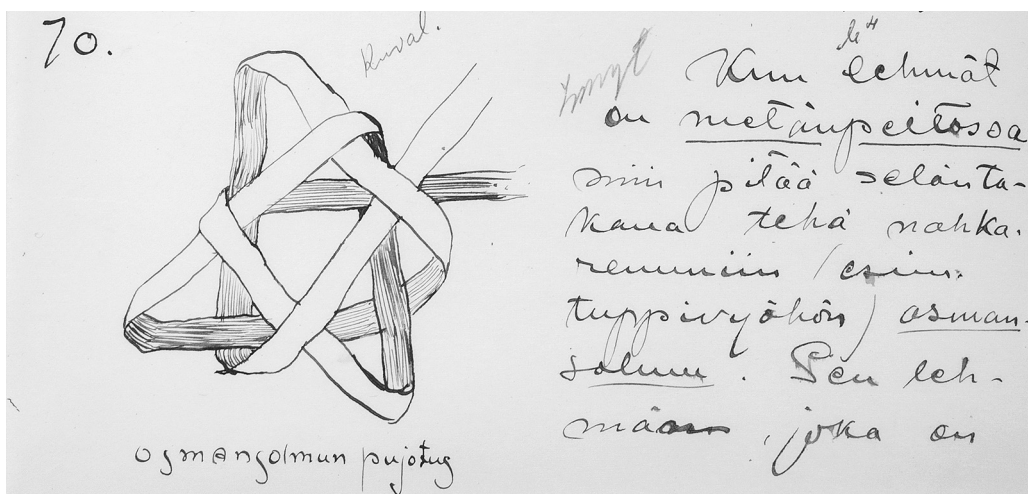 70.
Kuval.
osmansolmun pujotus
Kun lehmät
on metänpeitosa
niin pitää selänta-
kana tehä nahka-
remmiin (esim.
tuppivyöhön) osman-
solmu. Sen leh-
män, joka on